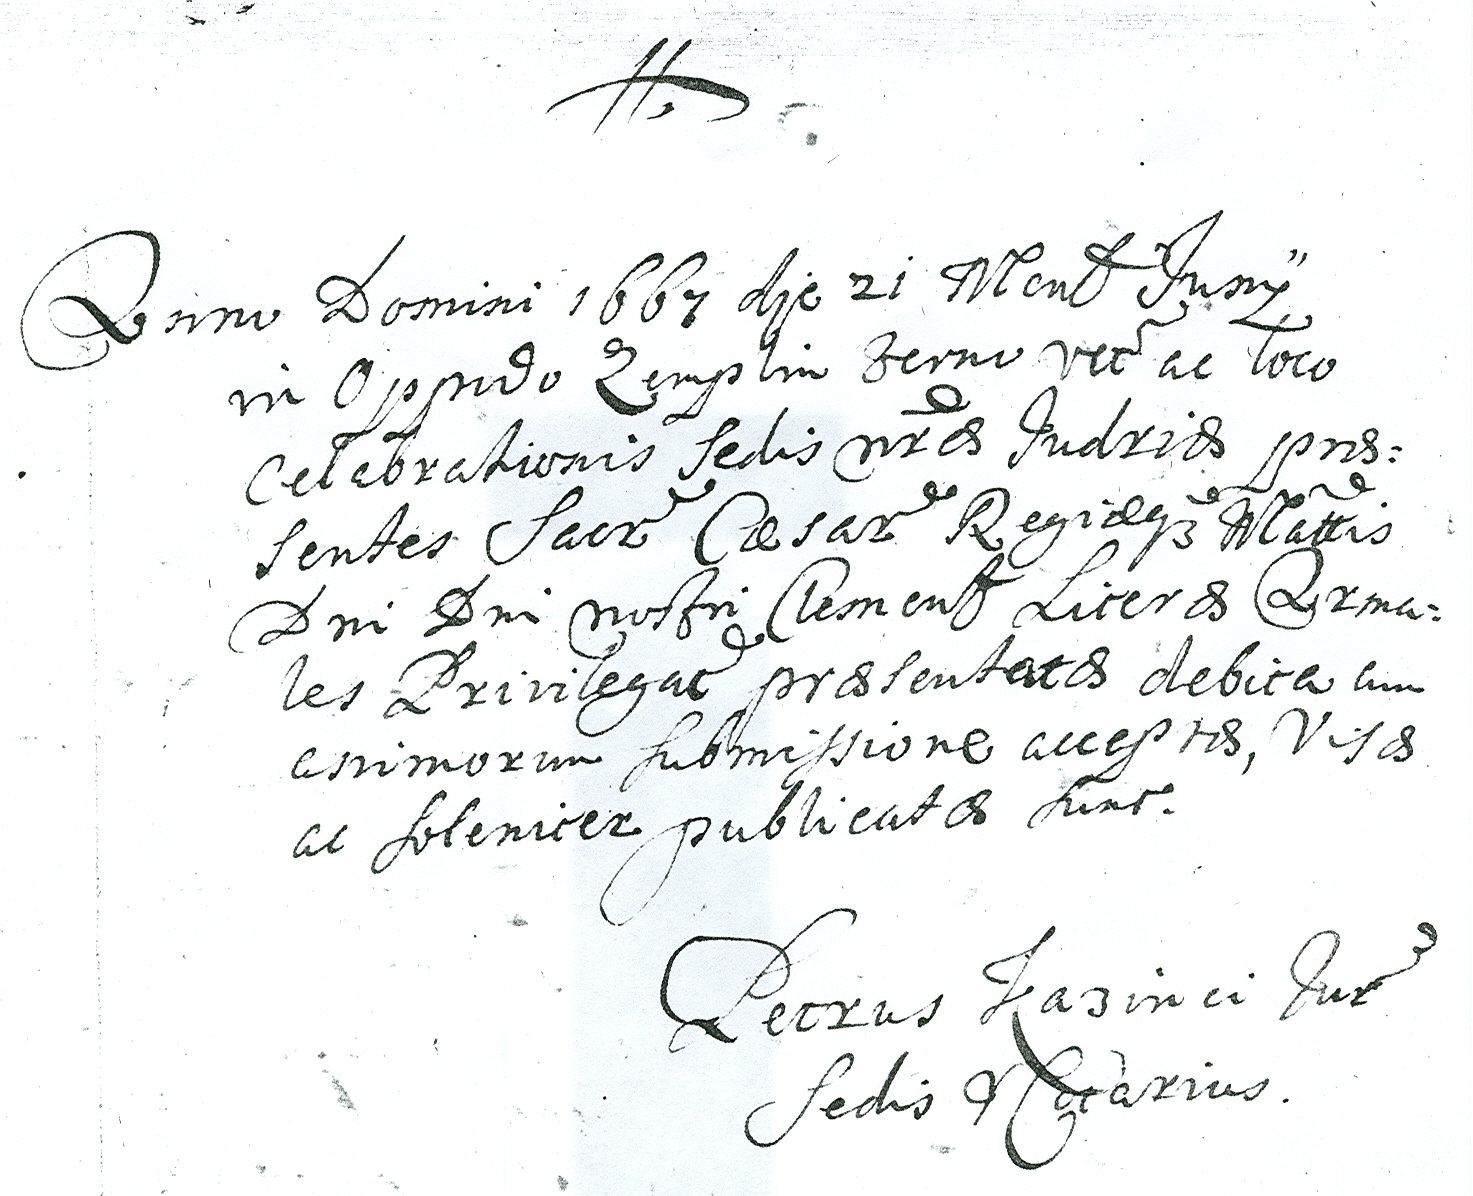 Anno Domini 1667 die 21 Mens Junÿ
in Oppido Zemplin termo vet ac loco
celebrationis Sedis nræ Judriæ præ=
sentes Sacr Cæsar Regiæq3 Mattis
Dni Dni nostri Clement Literæ Arma=
les Privilegat præsentatæ debita cum
animorum submissione acceptæ, Visæ
ac soleniter publicatæ sunt.
Petrus Kazinci Jur
Sedis Notarius.